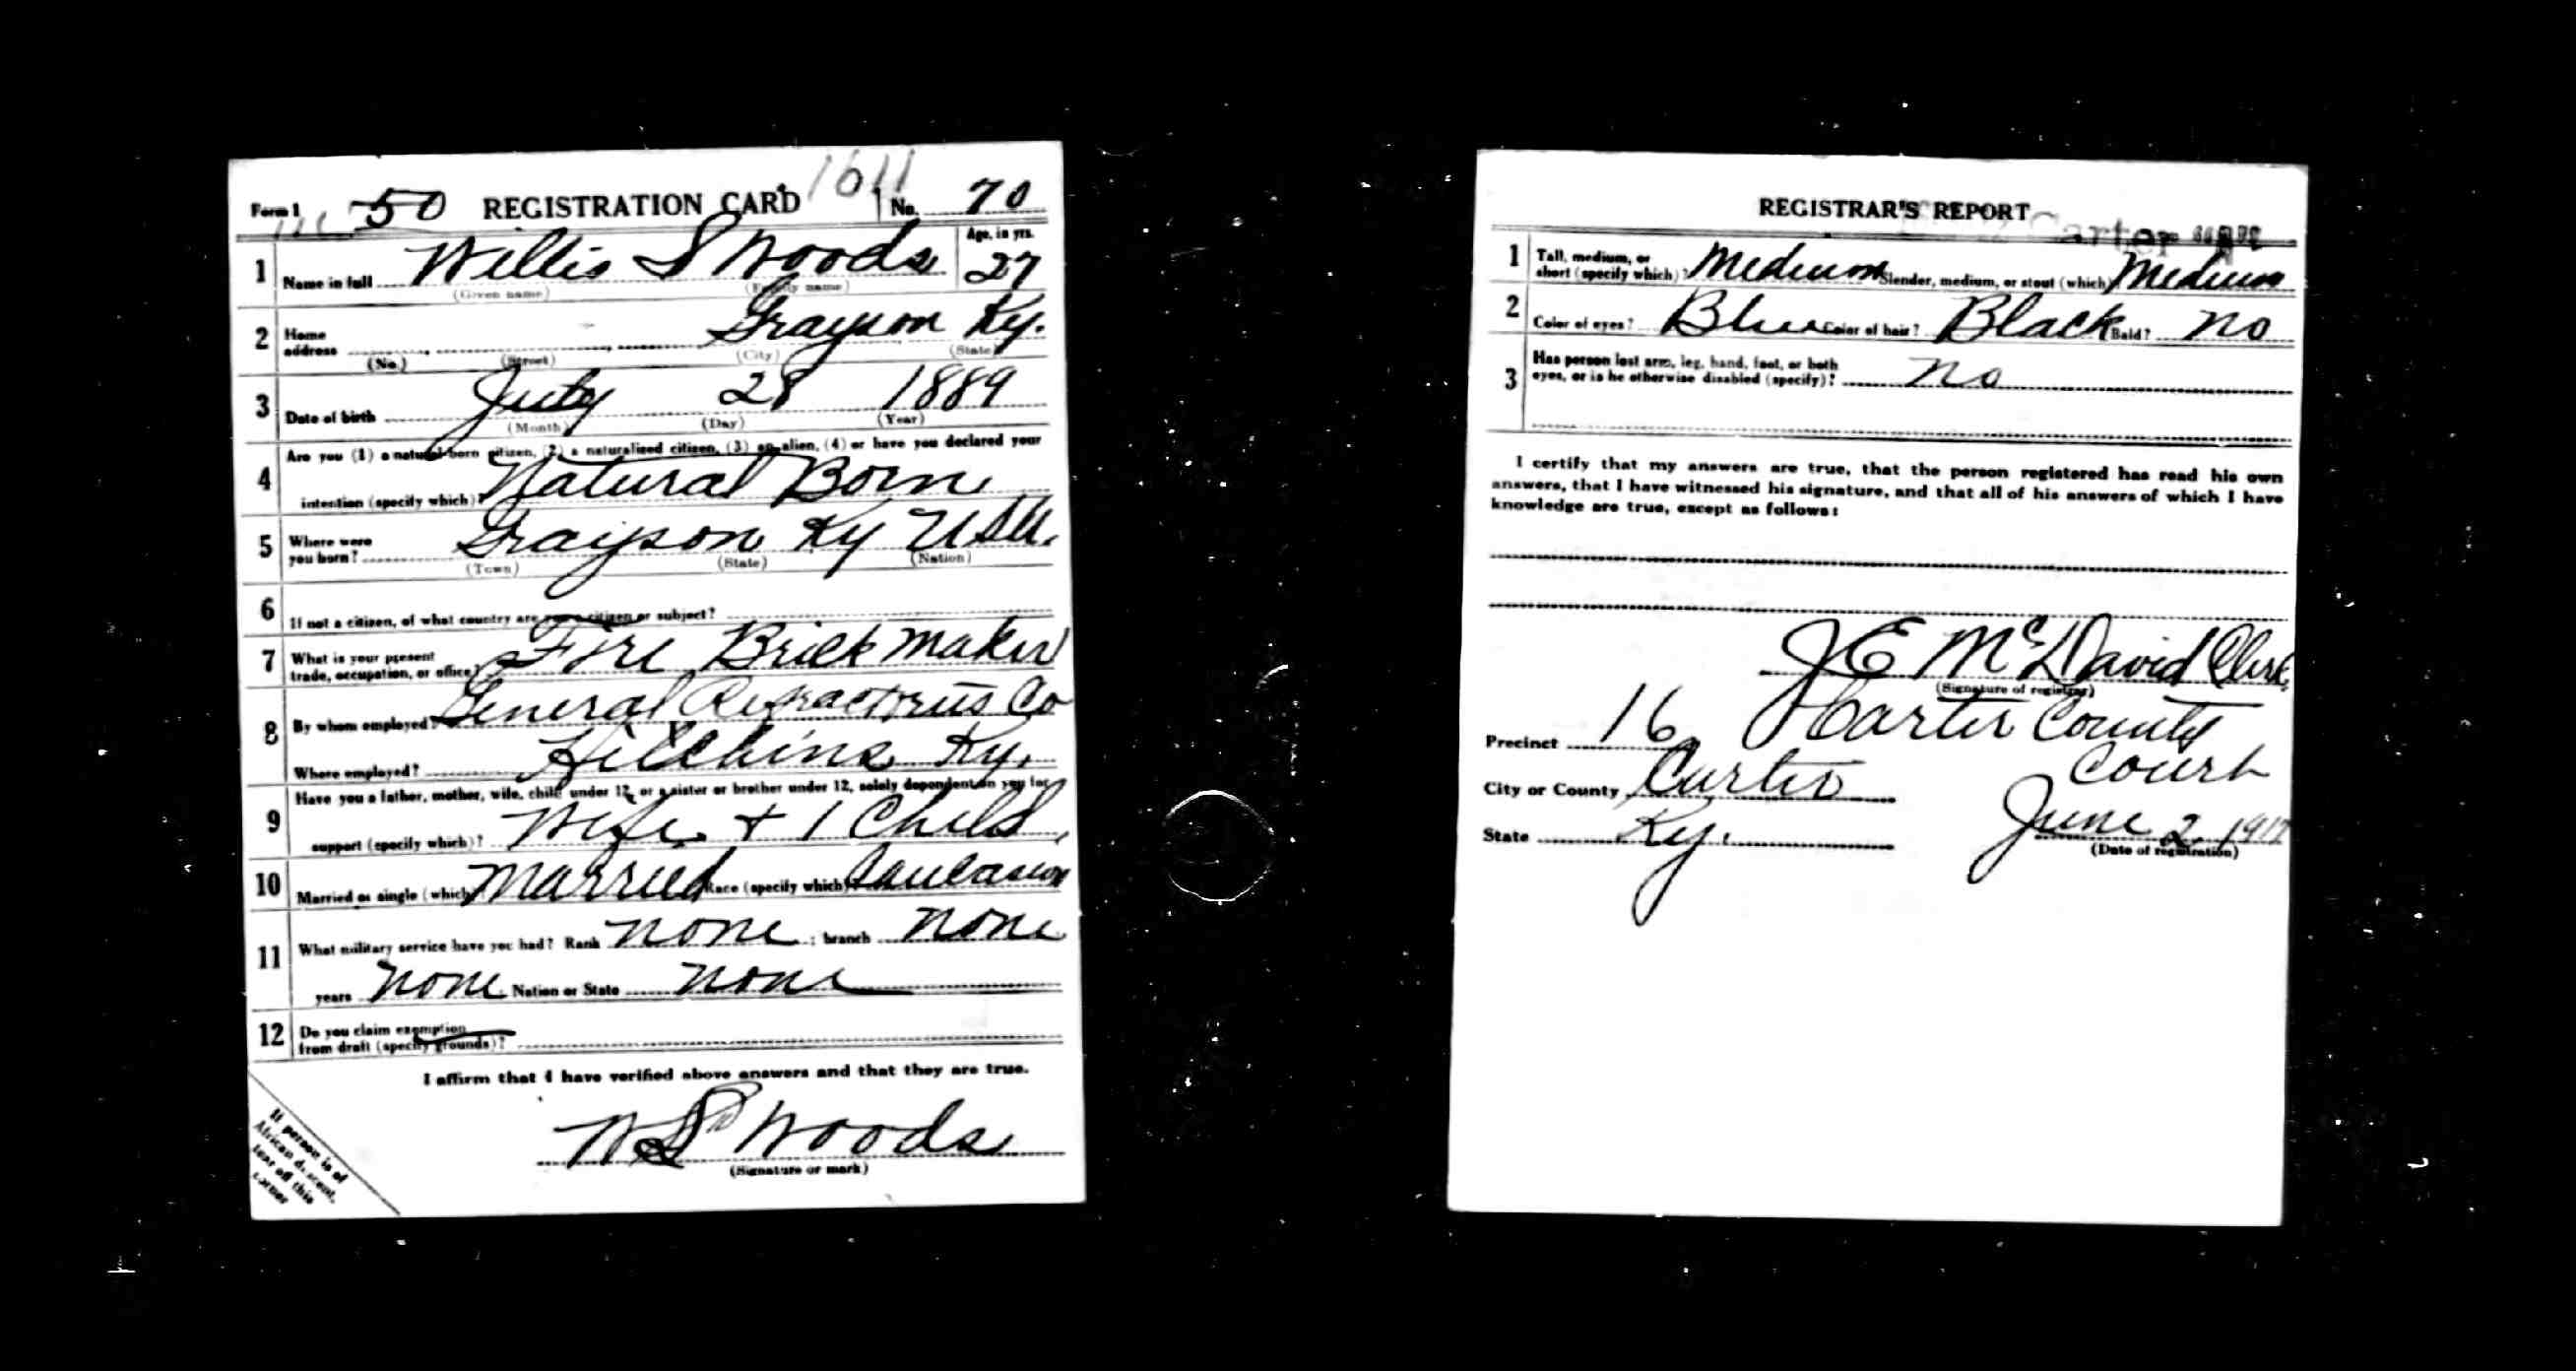 1611
Form 1 50 REGISTRATION CARD No. 70
Age, in yrs.
1 Name in full Willis S Woods 27
(Given name) (Family name)
2 Home address Grayson Ky.
(No.) (Street) (City) (State)
3 Date of birth July 28 1889
(Month) (Day) (Year)
Are you (1) a natural-born citizen, (2) a naturalized citizen, (3) an alien, (4) or have you declared your
4 intention (specify which)? Natural Born
5 Where were you born? Grayson Ky USA.
(Town) (State) (Nation)
6 If not a citizen, of what country are you a citizen or subject?
7 What is your present trade, occupation, or office? Fire Brick maker
8 By whom employed? General Refractories Co
Where employed? Hitchins Ky.
Have you a father, mother, wife, child under 12, or a sister or brother under 12, solely dependent on you for
9 support (specify which)? Wife + 1 Child
10 Married or single (which)? Married Race (specify which)? Caucasion
11 What military service have you had? Rank none ; branch none
years none Nation or State none
12 Do you claim exemption
from draft (specify grounds)?
I affirm that I have verified above answers and that they are true.
W S Woods
(Signature or mark)
If person is of
African descent,
tear off this
corner
REGISTRAR'S REPORT
Carter
1 Tall, medium, or
short (specify which)? Medium Slender, medium, or stout (which)? Medium
2 Color of eyes? Blue Color of hair? Black Bald? no
3 Has person lost arm, leg, hand, foot, or both
eyes, or is he otherwise disabled (specify)? no
I certify that my answers are true, that the person registered has read his own
answers, that I have witnessed his signature, and that all of his answers of which I have
knowledge are true, except as follows:
J E McDavid Clerk
(Signature of registrar)
Precinct 16 Carter County
Court
City or County Carter
State Ky. June 2 1917
(Date of registration)